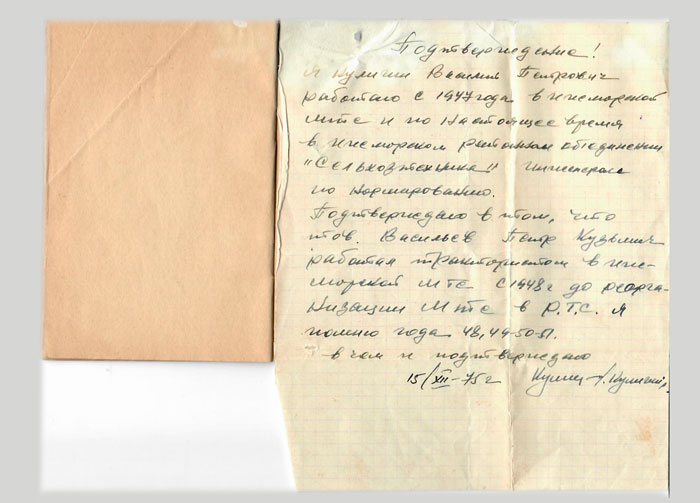 Подтверждение!
Я Кулигин Василий Петрович
работаю с 1947 года в
МТС и по настоящее время
в районном объединении
"Сельхозтехника" инженером
по нормированию.
Подтверждаю в том, что
тов. Васильев Петр Кузьмич
работал трактористом в
морской МТС с 1948 г до реорга-
низации МТС в Р.Т.С. Я
помню года 48, 49-50-51.
в чем и подтверждаю
15/XII-75 г